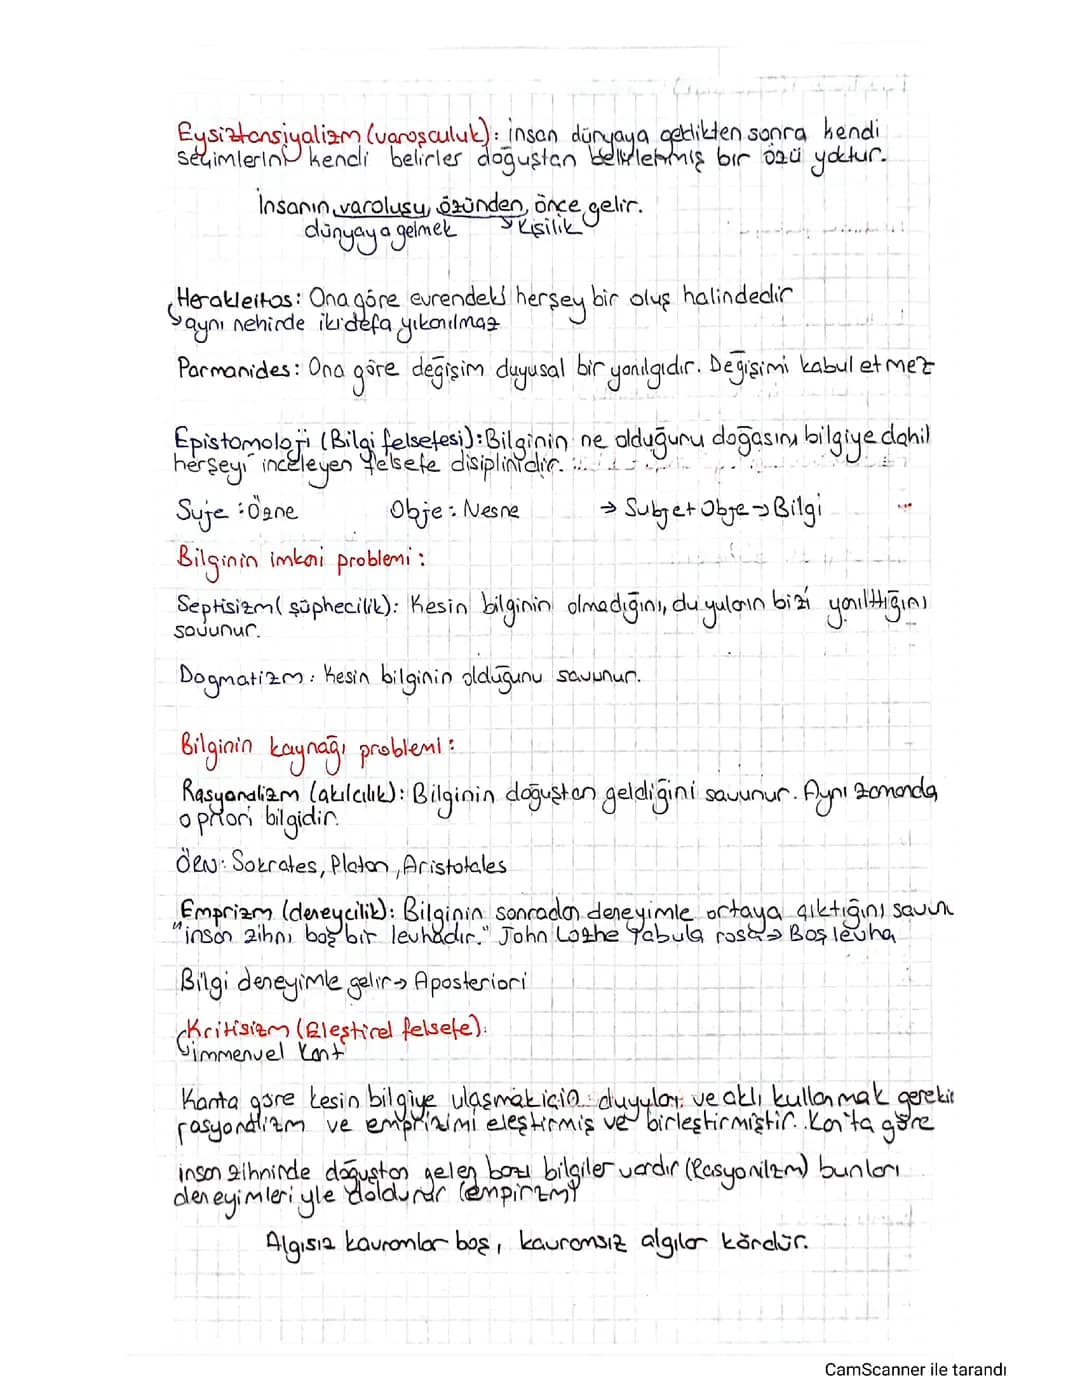 Eysiztansiyalizm (varoşculuk): insan dünyaya geldikten sonra kendi
seçimlerini kendi belirler doğuştan belirlenmiş bir özü yoktur.
İnsanın varoluşu, özünden, önce gelir.
dünyaya gelmek ↳ kişilik
Herakleitos: Ona göre evrendeki herşey bir oluş halindedir
↳ aynı nehirde iki defa yıkanılmaz
Parmanides: Ona göre değişim duyusal bir yanılgıdır. Değişimi kabul etmez
Epistomoloji (Bilgi felsefesi): Bilginin ne olduğunu doğasını bilgiye dahil
herşeyi inceleyen felsefe disiplinidir.
Suje: Özne Obje: Nesne → Subje+Obje → Bilgi
Bilginin imkanı problemi:
Septisizm (şüphecilik): Kesin bilginin olmadığını, duyuların bizi yanılttığını
savunur.
Dogmatizm: Kesin bilginin olduğunu savunur.
Bilginin kaynağı problemi:
Rasyonalizm (akılcılık): Bilginin doğuştan geldiğini savunur. Aynı zamanda
a priori bilgidir.
Sokrates, Platon, Aristotales
Emprizm (deneycilik): Bilginin sonradan deneyimle ortaya çıktığını savun
"insan zihni boş bir levhadır." John Lozhe Tabula rasa → Boş levha
Bilgi deneyimle gelir → Aposteriori
Kritisizm (Eleştirel felsefe):
↳ immenuel Kant
Kanta göre kesin bilgiye ulaşmak için duyuları ve aklı kullanmak gerekir
rasyonalizm ve emprizimi eleştirmiş ve birleştirmiştir. Kan'ta göre
insan zihninde doğuştan gelen bazı bilgiler vardır (Rasyonilzm) bunları
deneyimleriyle doldurur (empirzm)
Algısız kavramlar boş, kavramsız algılar kördür.
CamScanner ile tarandı